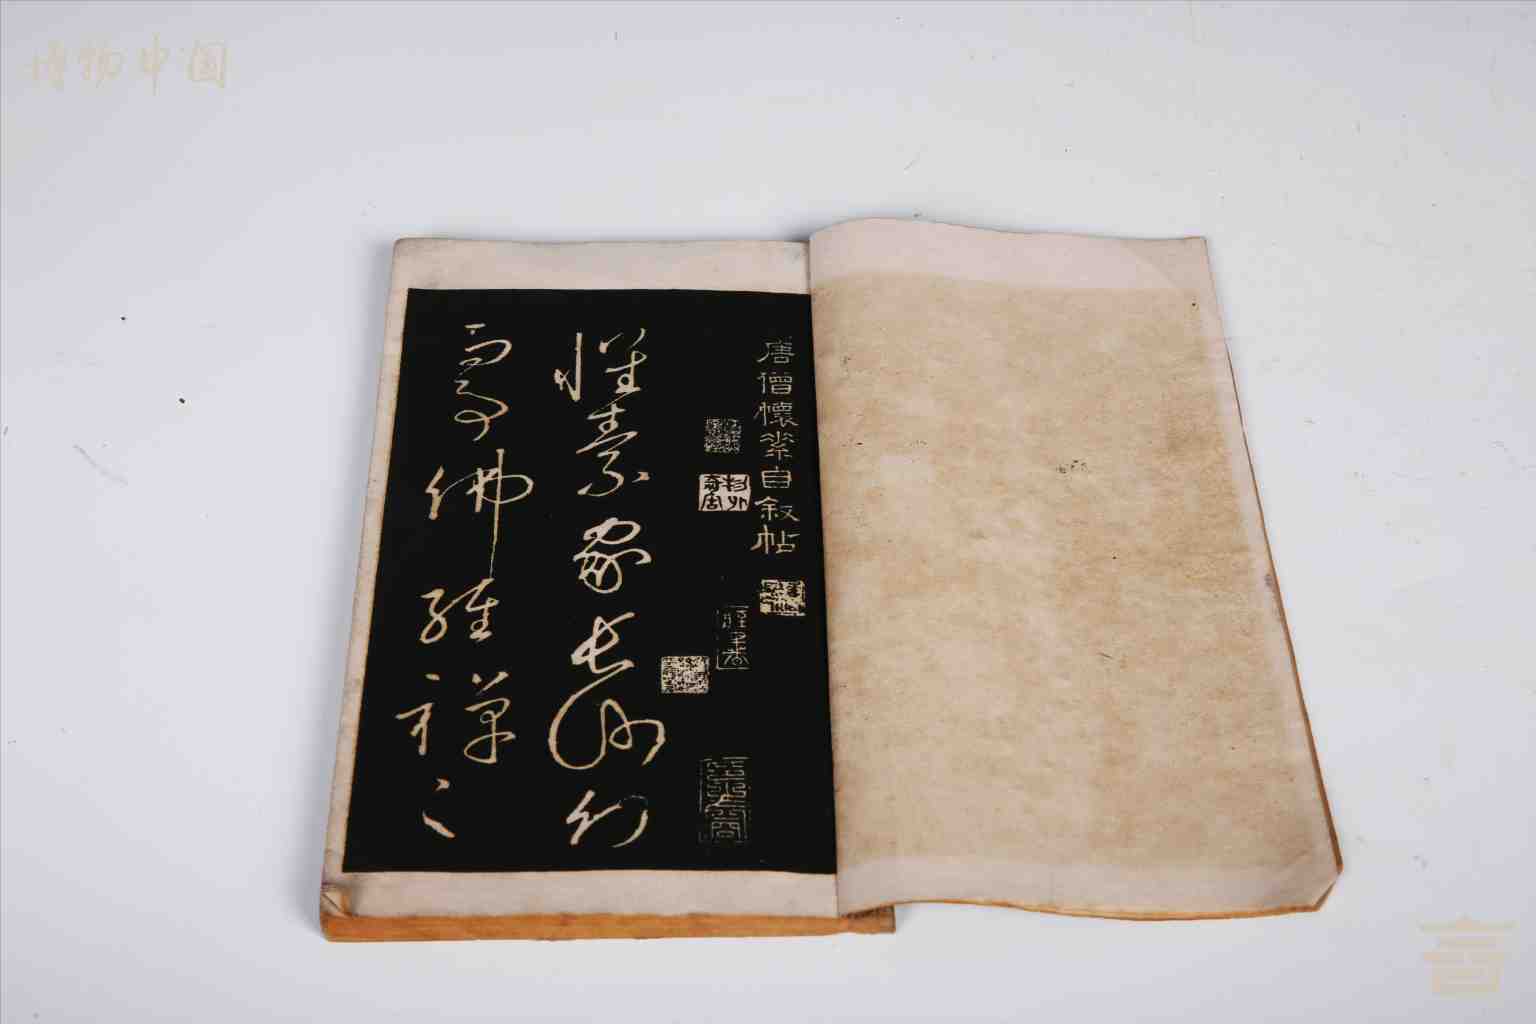 博物中国
唐僧懷素自敘帖
懷素家長沙幼
而事佛經禪之